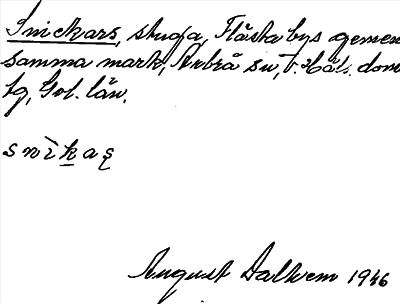 Snickars, stuga, Flästa bys gemen
samma mark, Arbrå sn, V. Häls. dom
sg, Gvl. län.
snìkaṣ
August Dalkvem 1946